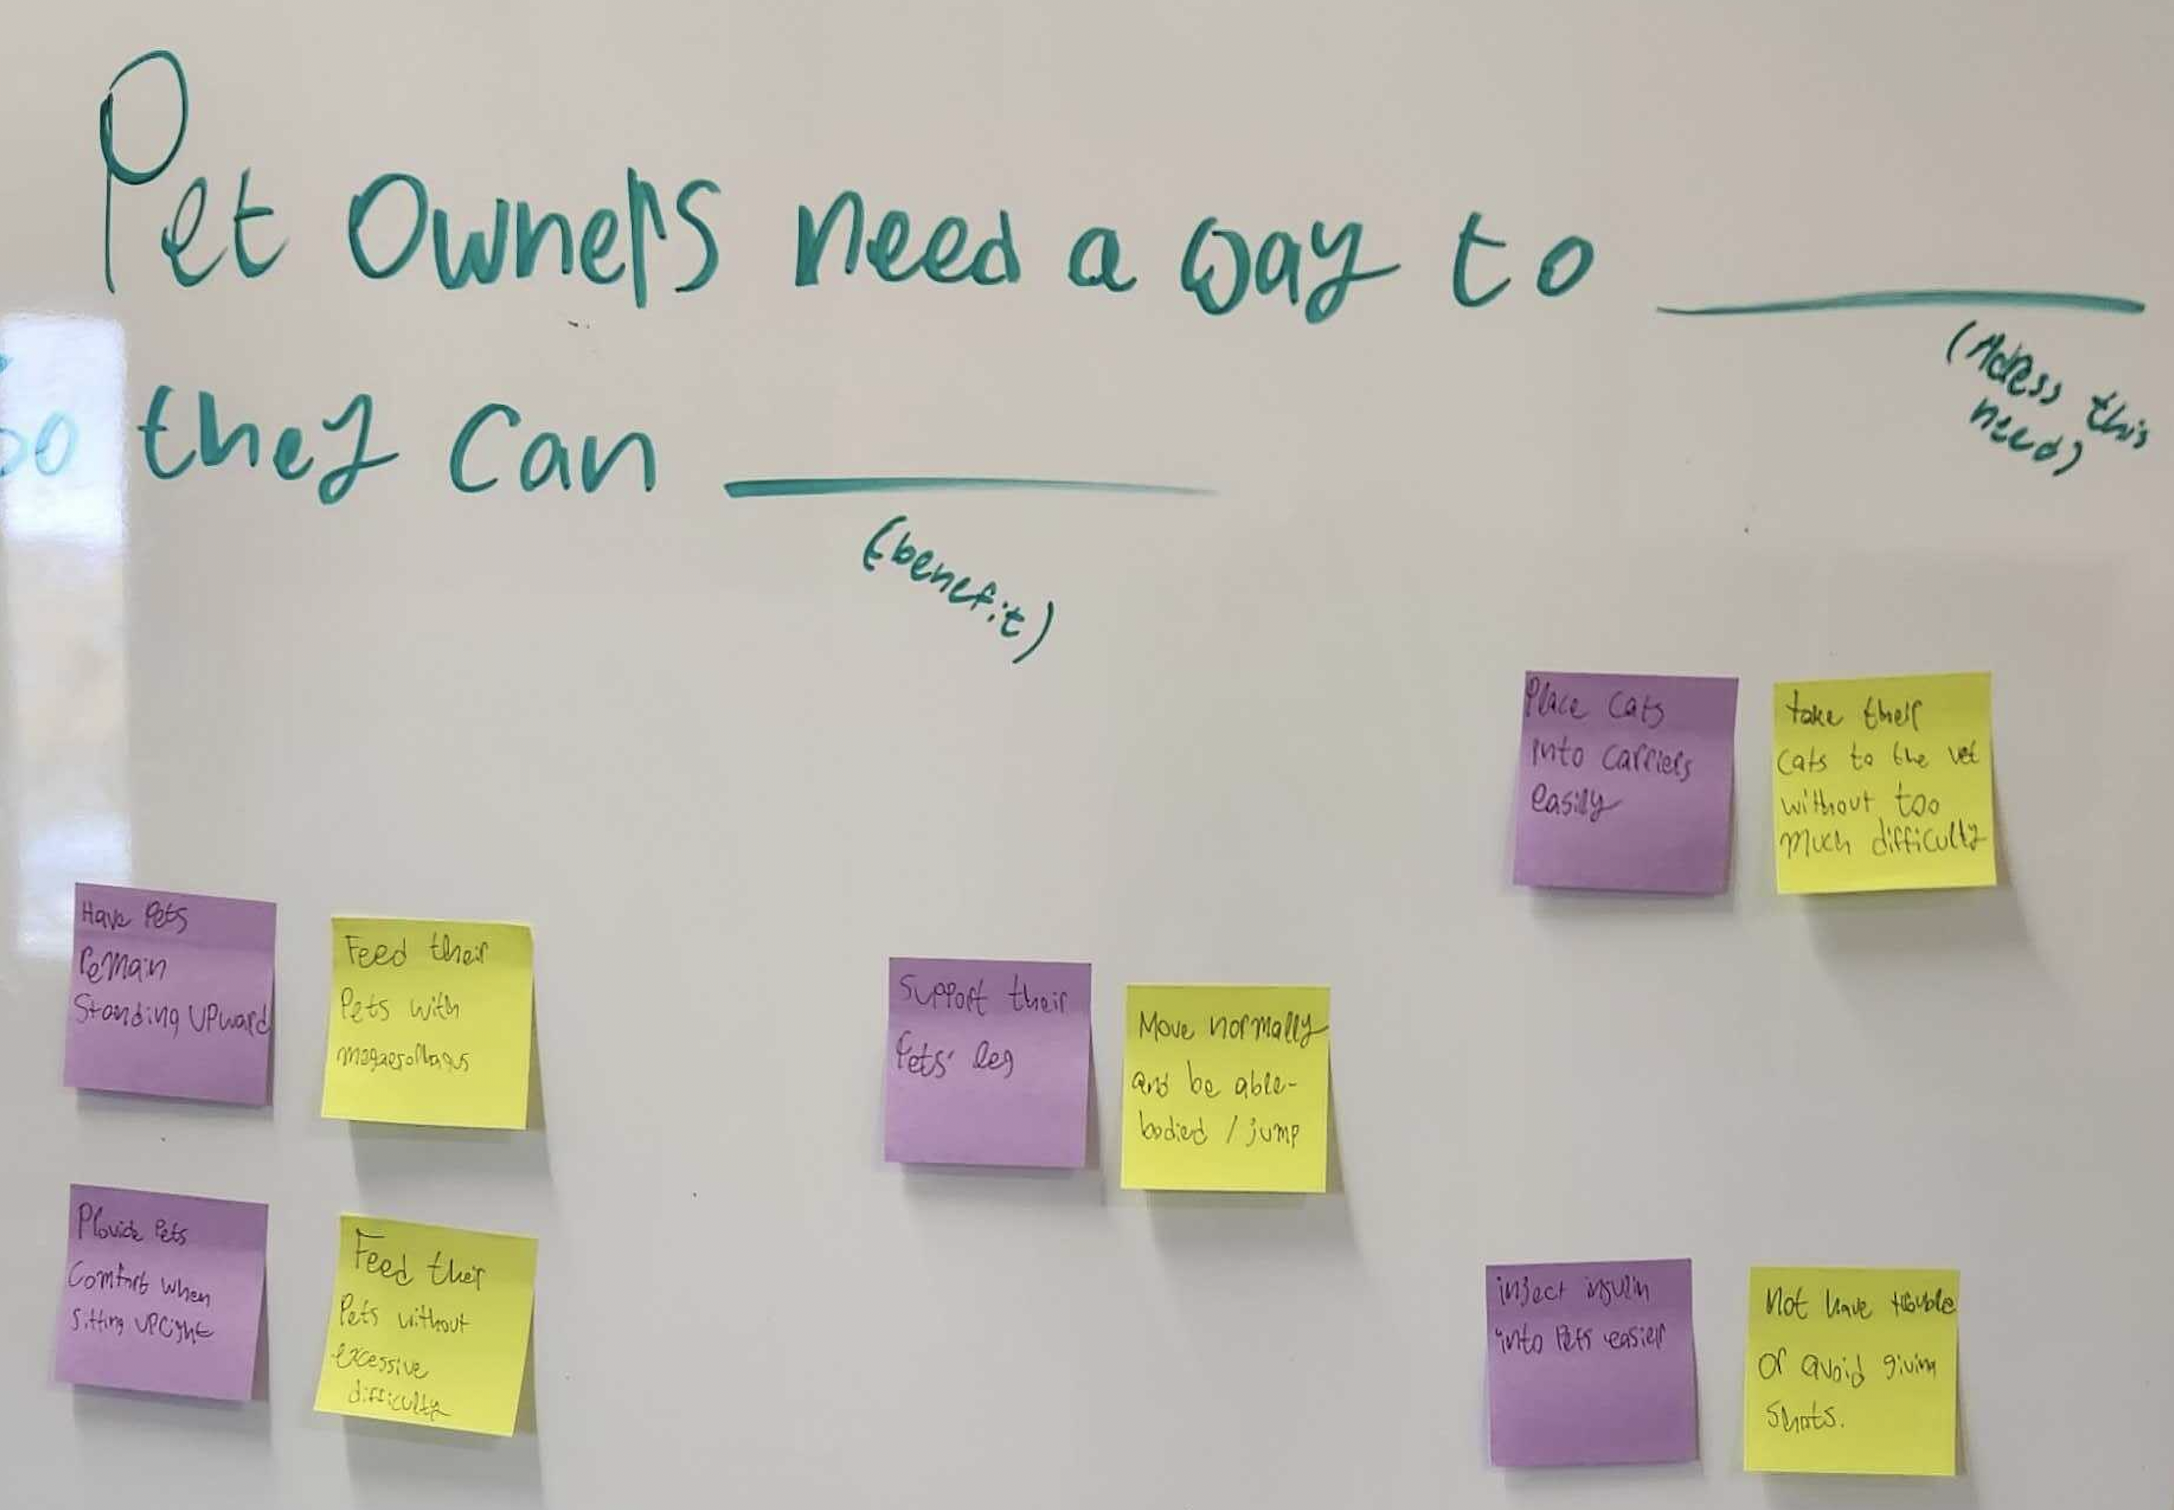 Pet Owners need a way to ________
(Adress this
need)
So they can ________
(benefit)
Place Cats
into carriers
easily
take their
cats to the vet
without too
much difficulty
Have Pets
Remain
Standing UPward
Feed their
Pets with
megaesophagus
Support their
Pets' leg
Move normally
and be able-
bodied / jump
Provide Pets
Comfort when
sitting upright
Feed their
Pets without
excessive
difficulty
inject insulin
into Pets easier
Not have trouble
or avoid giving
shots.